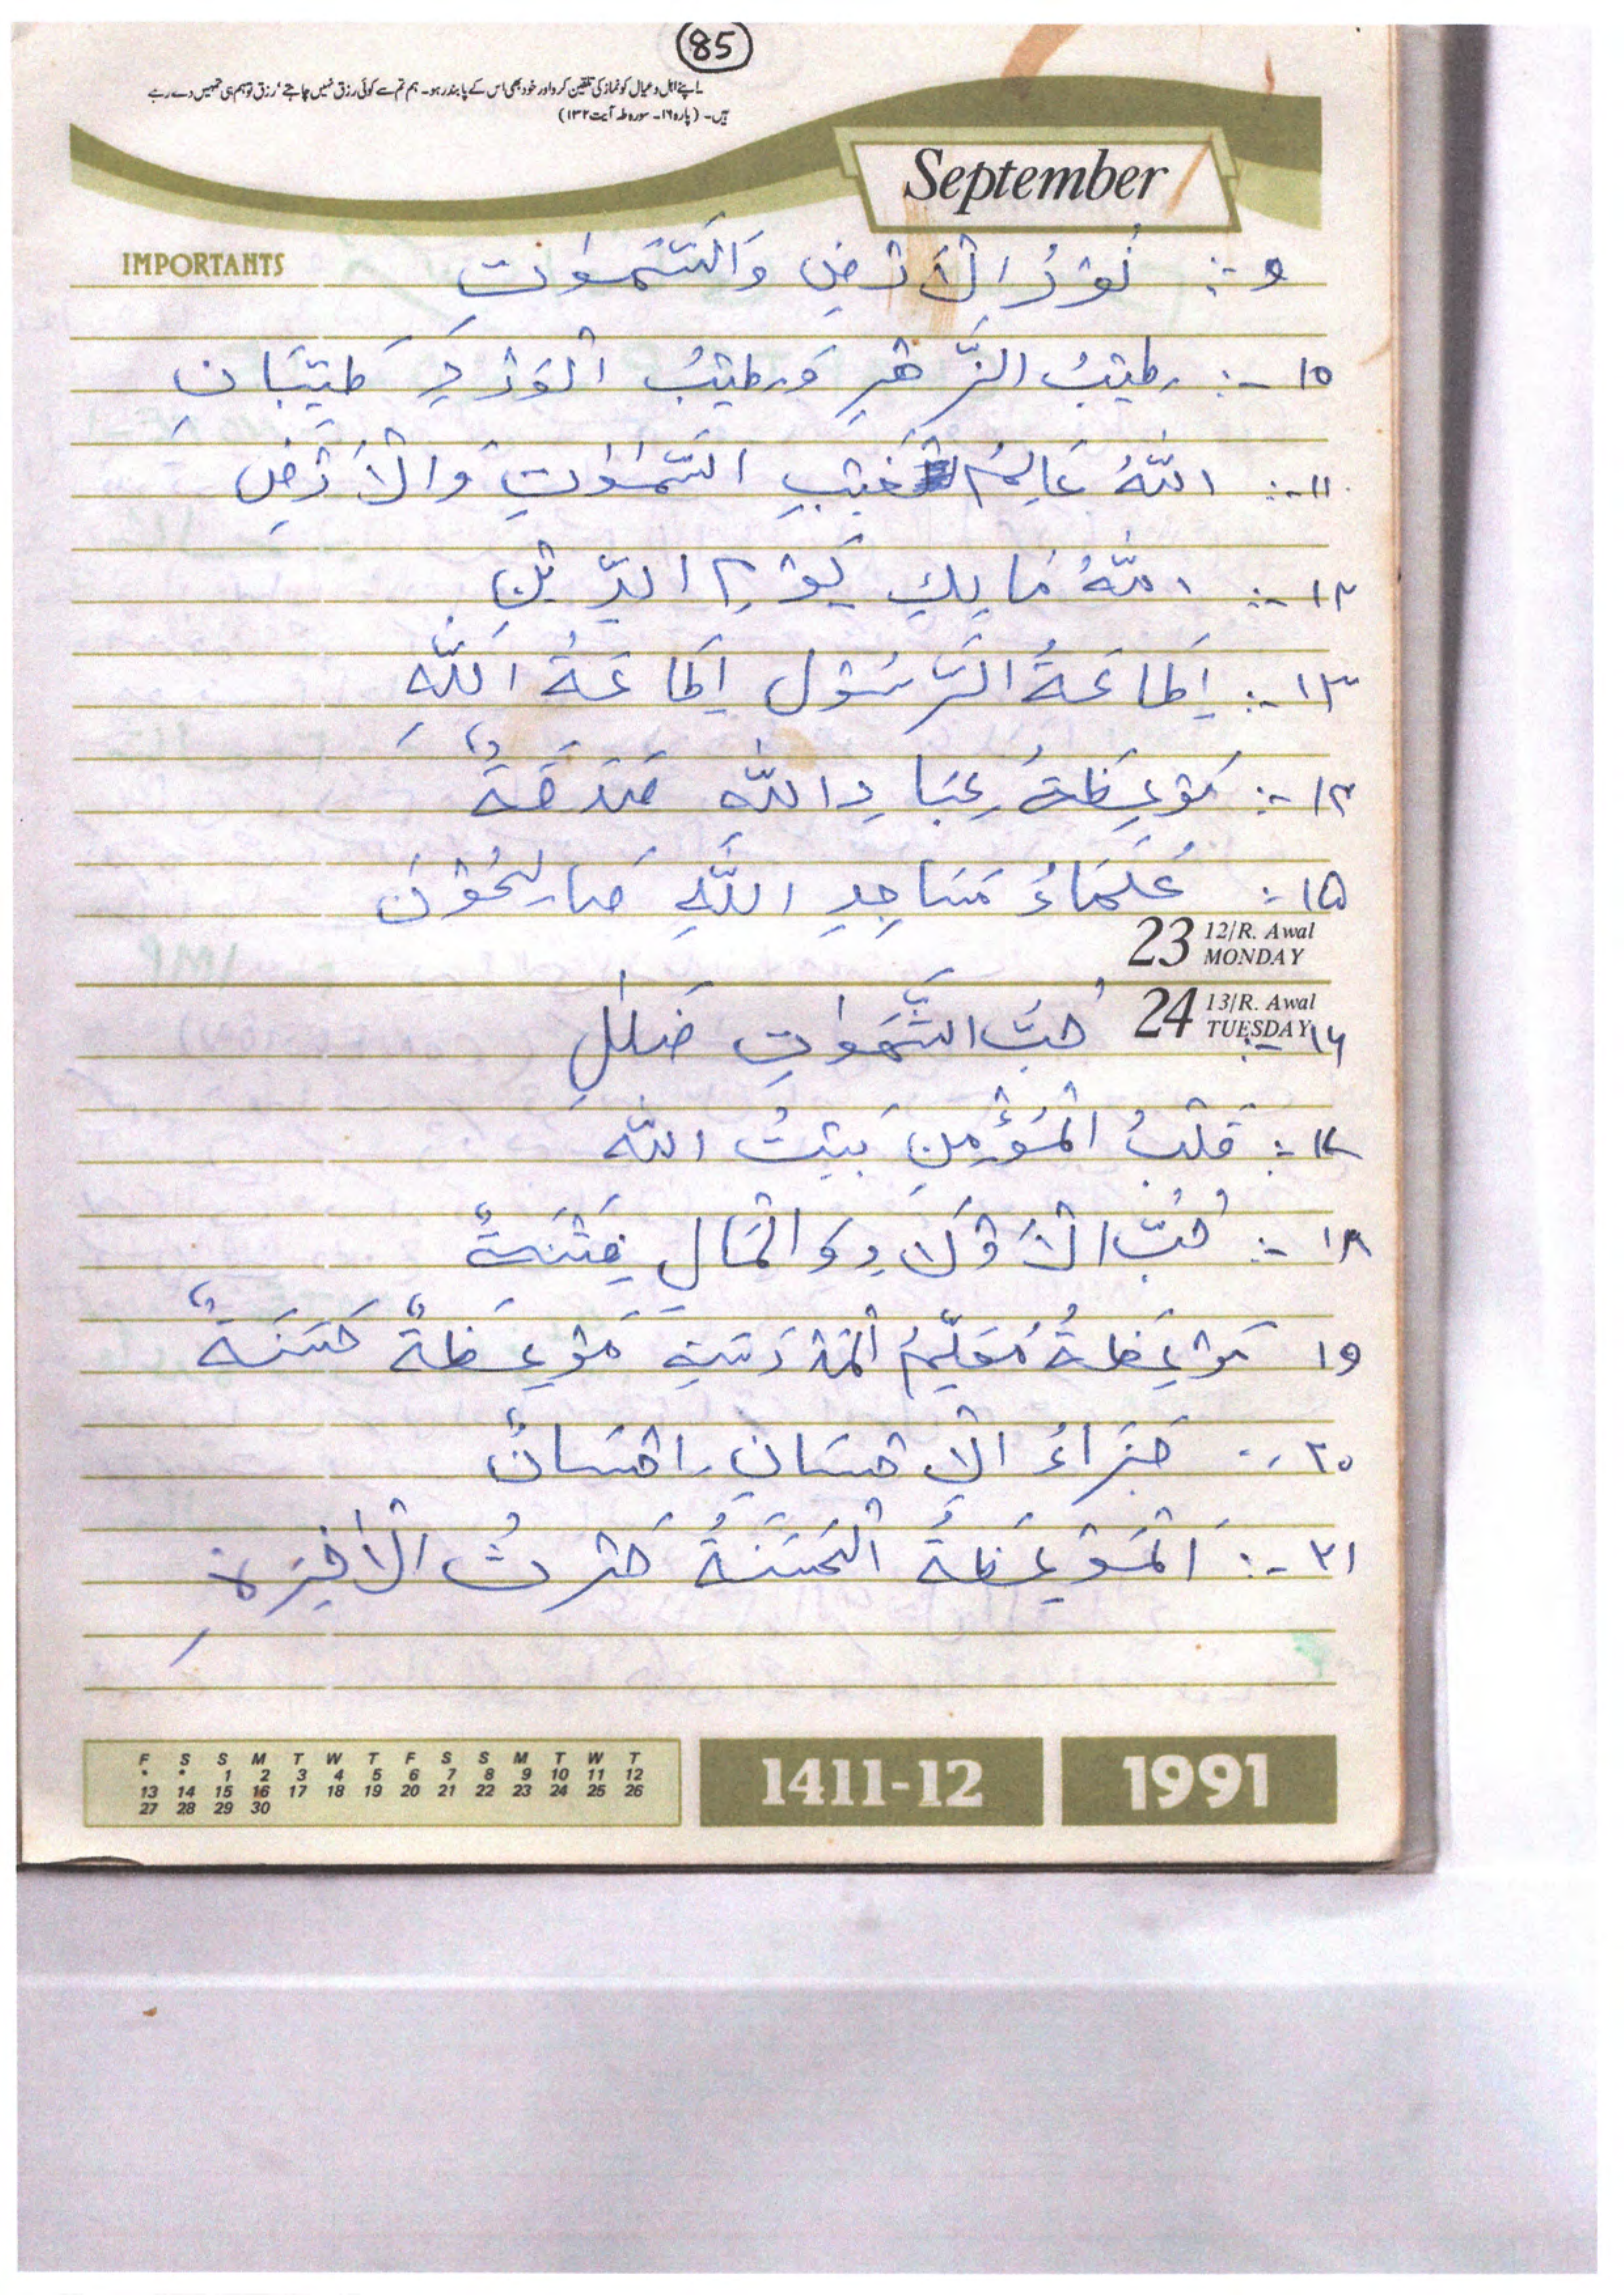 85
اپنے اہل و عیال کو نماز کی تلقین کرو اور خود بھی اس کے پابند رہو۔ ہم تم سے کوئی رزق نہیں چاہتے ' رزق تو ہم ہی تمہیں دے رہے
ہیں۔ (پارہ ۱۶۔ سورہ طہ آیت ۱۳۲)
September
IMPORTANTS
۹ :- نُوْرُ الْاَرْضِ وَالسَّمٰوٰتِ
۱۰ :- طِيْبُ الزَّهْرِ وَطِيْبُ الْوَرْدِ طَيِّبَانِ
۱۱ :- اللّٰهُ عَالِمُ غَيْبِ السَّمٰوٰتِ وَالْاَرْضِ
۱۲ :- اللّٰهُ مَالِكِ يَوْمِ الدِّيْنِ
۱۳ :- اِطَاعَةُ الرَّسُوْلِ اِطَاعَةُ اللّٰهِ
۱۴ :- مَوْعِظَةُ عِبَادِ اللّٰهِ صَدَقَةٌ
۱۵ :- عُلَمَاءُ مَسَاجِدِ اللّٰهِ صَالِحُوْنَ
23 12/R. Awal
MONDAY
24 13/R. Awal
TUESDAY
۱۶ :- حُبُّ الشَّهَوٰاتِ ضَلٰلٍ
۱۷ :- قَلْبُ الْمُؤْمِنِ بَيْتُ اللّٰه
۱۸ :- حُبُّ الْاَوْلَادِ وَالْمَالِ فِتْنَةٌ
۱۹ مَوْعِظَةُ مُعَلِّمُ الْمَدْرَسَةِ مَوْعِظَةٌ حَسَنَةٌ
۲۰ :- جَزَاءُ الْاِحْسَانِ اِحْسَانٌ
۲۱ :- اَلْمَوْعِظَةُ الْحَسَنَةُ حَرْثُ الْاٰخِرَةِ
F S S M T W T F S S M T W T
* * 1 2 3 4 5 6 7 8 9 10 11 12
13 14 15 16 17 18 19 20 21 22 23 24 25 26
27 28 29 30
1411-12
1991